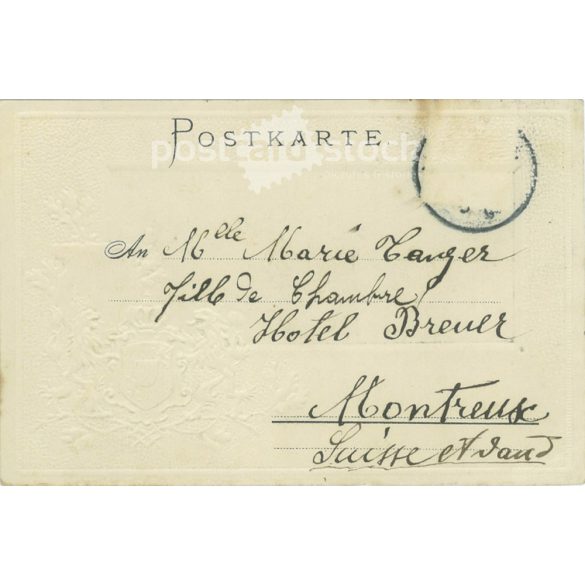 POSTKARTE.
postcardstock
An Mlle Marie Tanger
Fille de Chambre
Hotel Breuer
Montreux
Suisse et Vaud